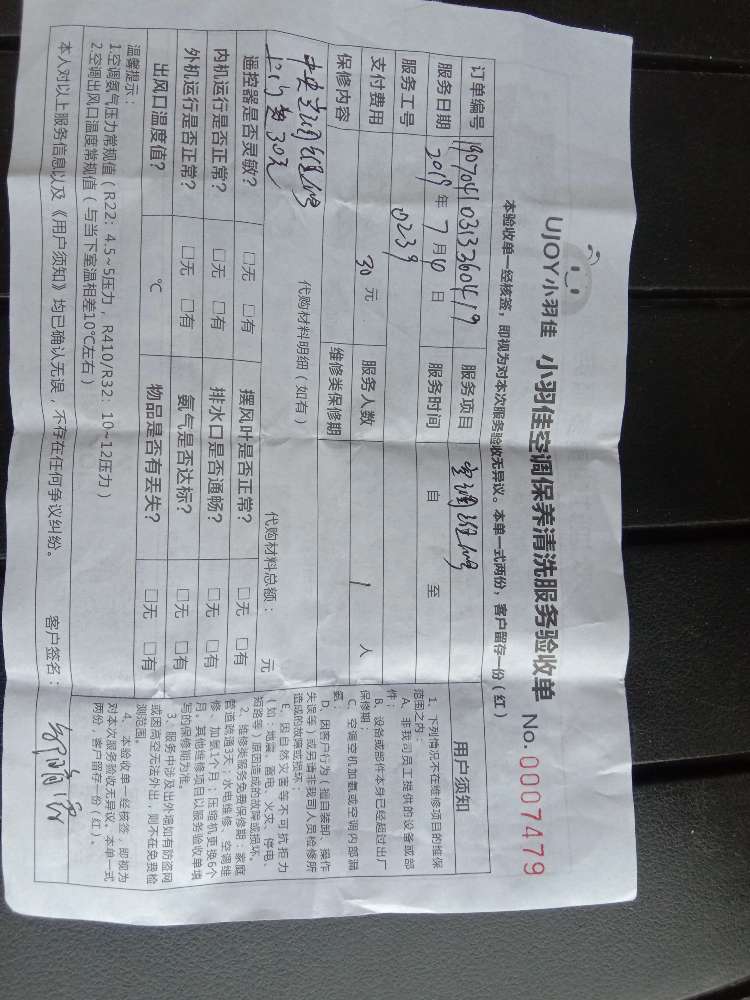 UJOY小羽佳 小羽佳空调保养清洗服务验收单 No. 0007479
本验收单一经核签，即视为对本次服务验收无异议。本单一式两份，客户留存一份（红）
订单编号 服务项目 空调维修
服务日期 2019年7月4日 服务时间 自 至
服务工号 0239
支付费用 30元 服务人数 1人
保修内容 维修类保修期
中央空调维修
上门费30元
代购材料明细（如有）
代购材料总额： 元
遥控器是否灵敏？ □无 □有 摆风叶是否正常？ □无 □有
内机运行是否正常？ □无 □有 排水口是否通畅？ □无 □有
外机运行是否正常？ □无 □有 氨气是否达标？ □无 □有
出风口温度值？ ℃ 物品是否有丢失？ □无 □有
温馨提示：
1.空调氨气压力常规值（R22：4.5~5压力，R410/R32：10~12压力）
2.空调出风口温度常规值（与当下室温相差10℃左右）
本人对以上服务信息以及《用户须知》均已确认无误，不存在任何争议纠纷。 客户签名：
用户须知
1、下列情况不在维修项目的维保
范围之内：
A、非我司员工提供的设备或部
件；
B、设备或部件本身已经超过出厂
保修期；
C、空调空机加氨或空调内部漏
氨；
D、因客户行为（擅自装卸、操作
失误等）或另请非我司人员检修所
造成的故障或损坏；
E、因自然灾害等不可抗拒力
（如：地震、雷电、火灾、停电、
短路等）原因造成的故障或损坏。
2、维修类服务免费保修期：家庭
管道疏通3天；水电维修、空调维
修、加氨1个月；压缩机更换6个
月。其他维修项目以服务验收单填
写的保修期为准。
3、服务中涉及出外墙如有防盗网
或因高空无法外出，则不在免费检
测范围。
4、本验收单一经核签，即视为
对本次服务验收无异议。本单一式
两份，客户留存一份（红）。